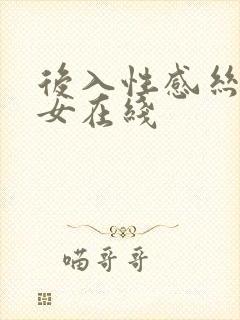 後入性感絲
女在綫
喵哥哥